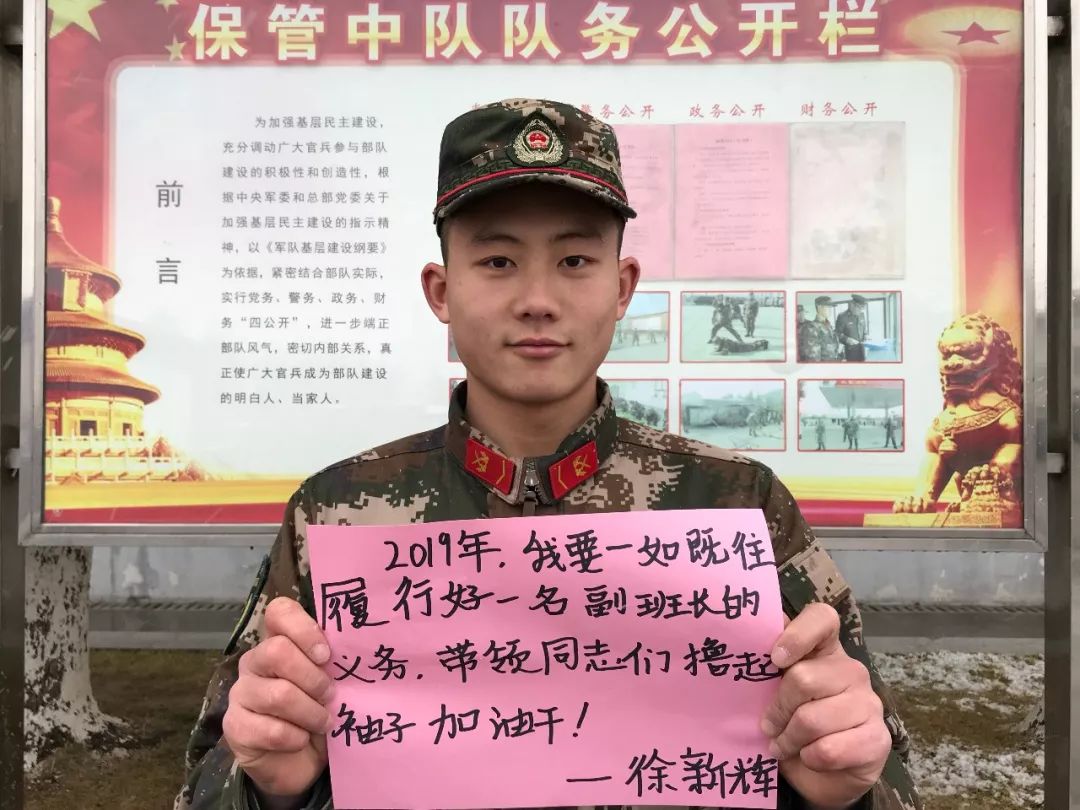 保管中队队务公开栏
前言
为加强基层民主建设，
充分调动广大官兵参与部队
建设的积极性和创造性，根
据中央军委和总部党委关于
加强基层民主建设的指示精
神，以《军队基层建设纲要》
为依据，紧密结合部队实际，
实行党务、警务、政务、财
务“四公开”，进一步端正
部队风气，密切内部关系，真
正使广大官兵成为部队建设
的明白人、当家人。
警务公开
政务公开
财务公开
2019年，我要一如既往
履行好一名副班长的
义务，带领同志们撸起
袖子加油干！
—徐新辉